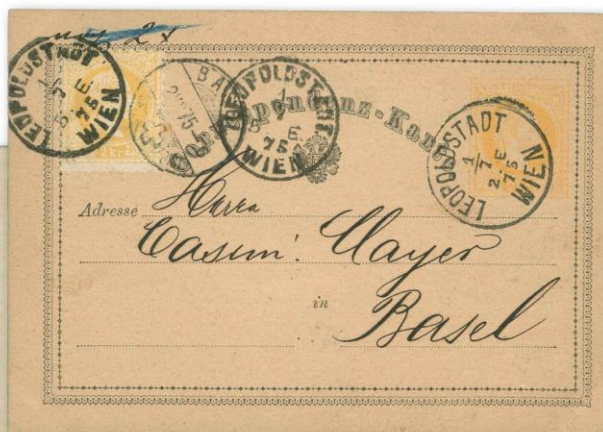 LEOPOLDSTADT
1/7
5. E
75
WIEN
BA
75
LEOPOLDSTADT
1/7
E
75
WIEN
Correspondenz-Karte
LEOPOLDSTADT
1/7
2. E
75
WIEN
Adresse Herrn
Casim: Mayer
in
Basel